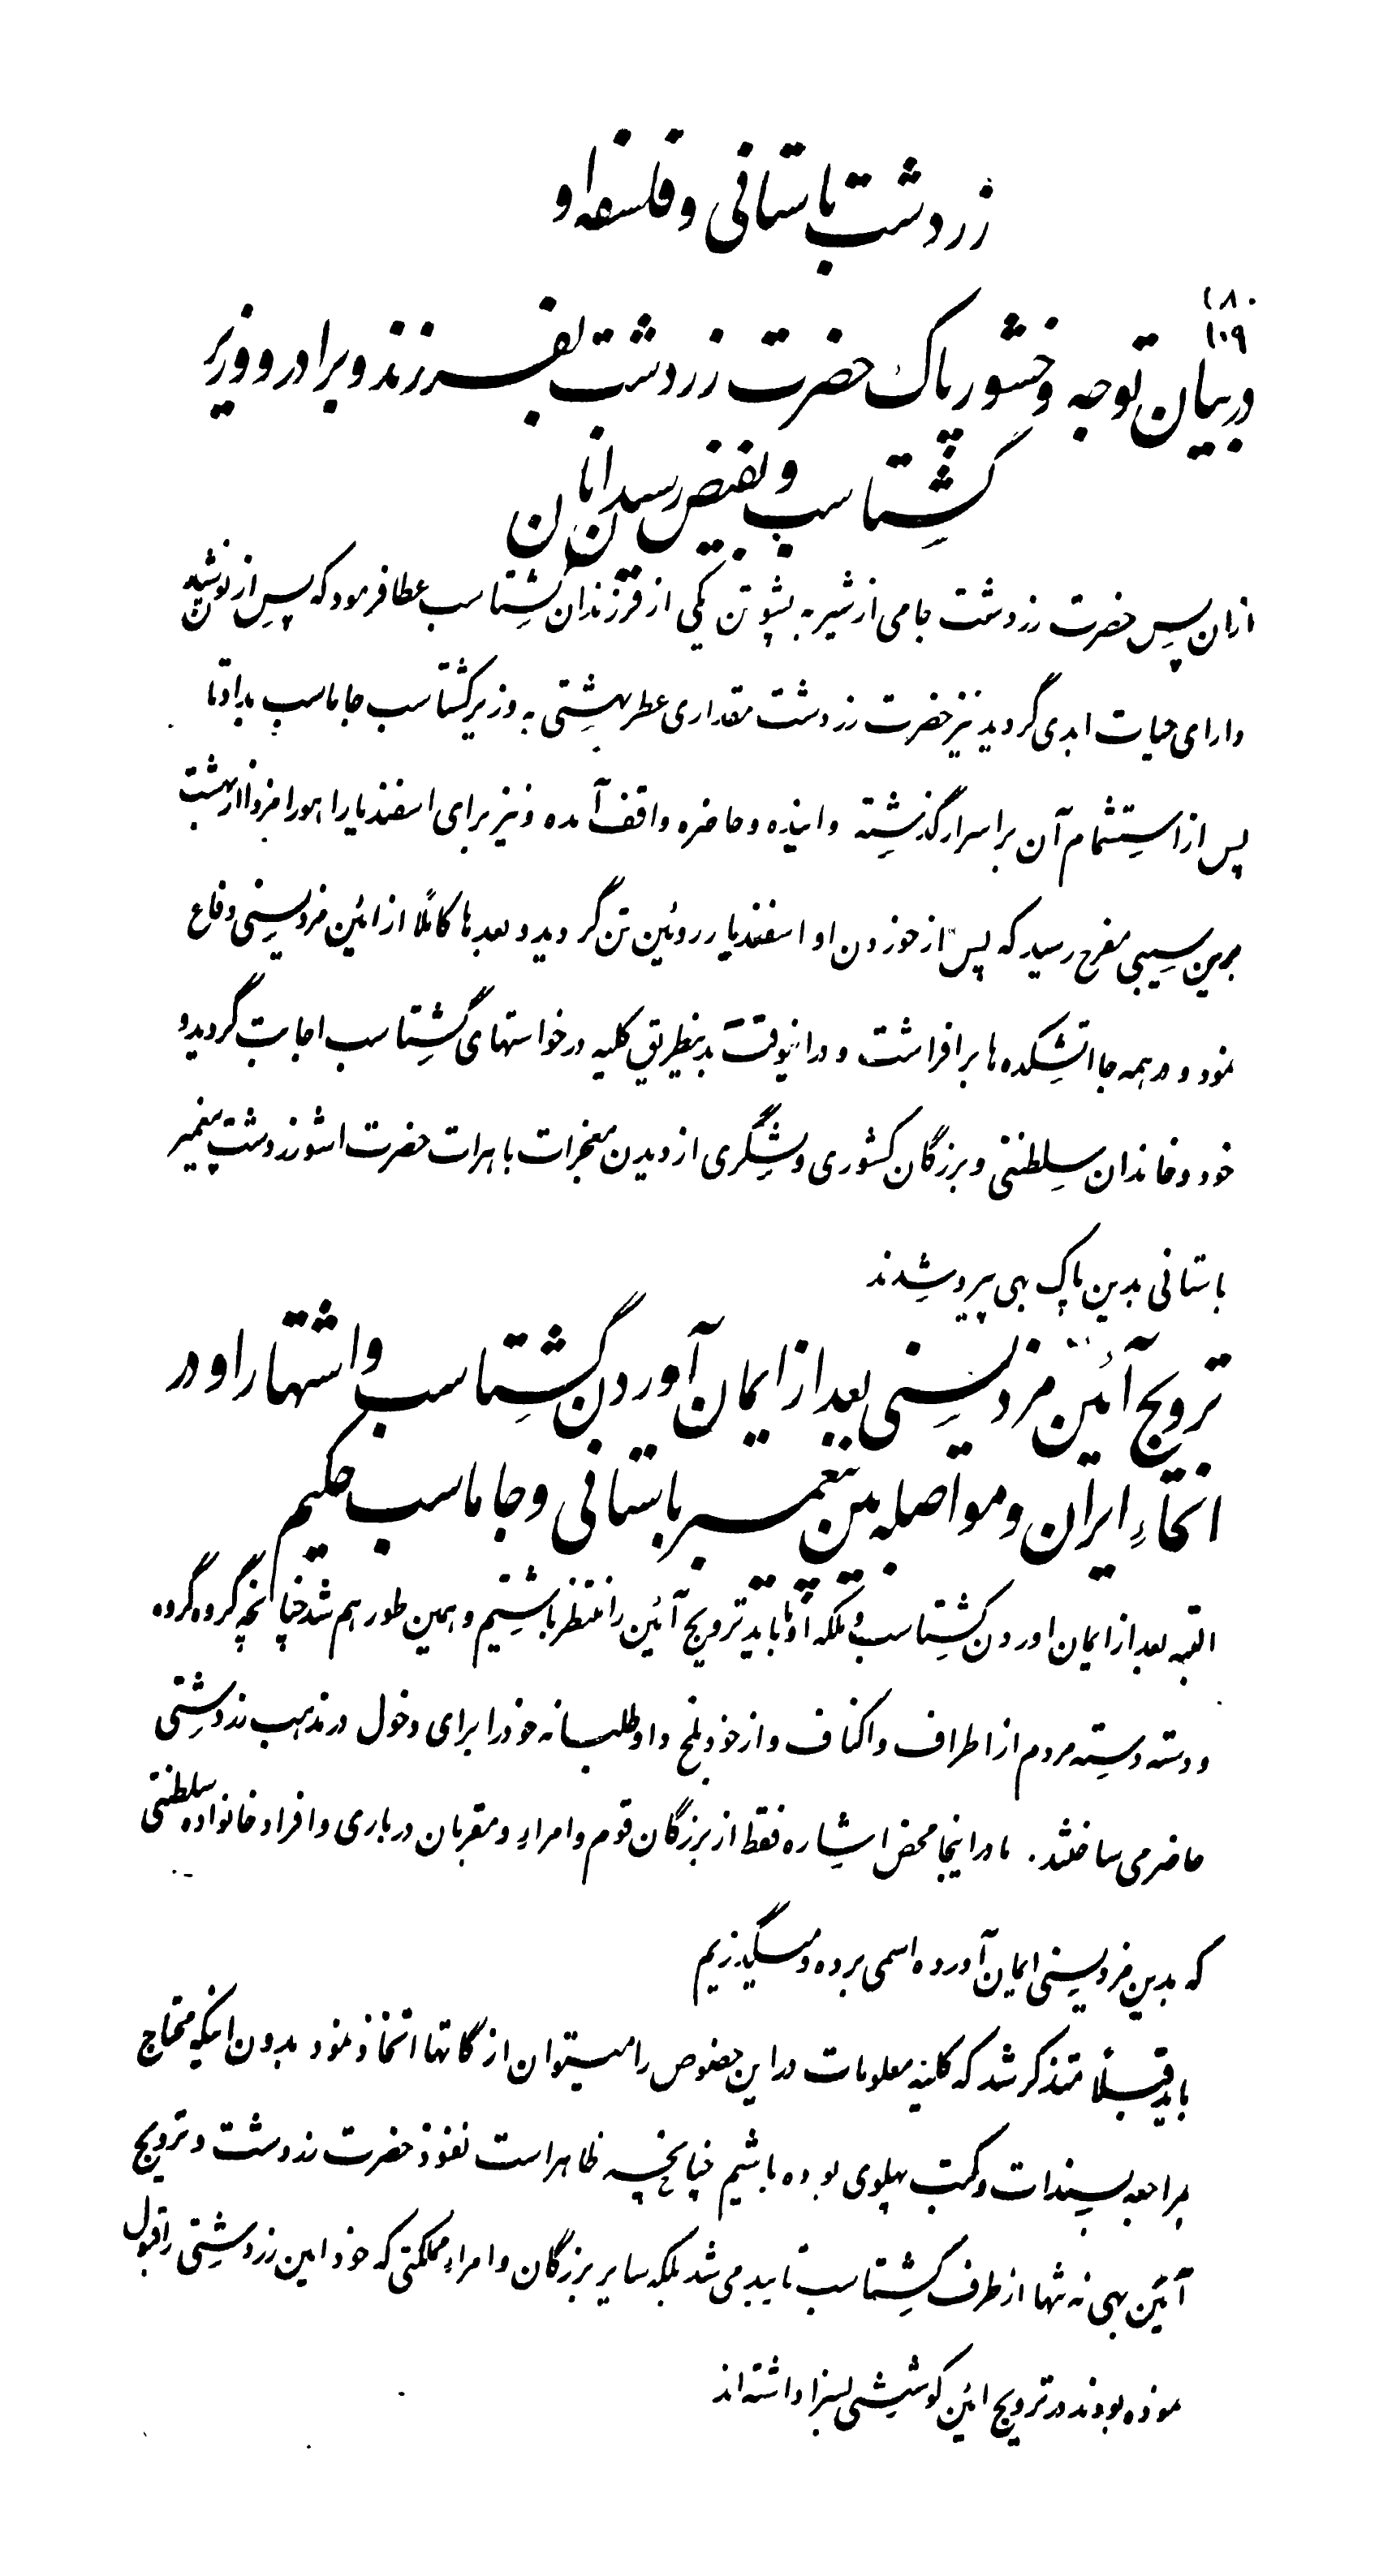 زردشت باستانی و فلسفه او
۱۸۰
۱۰۹
در بیان توجه وخشور پاک حضرت زردشت بفرزند و برادر و وزیر
گشتاسب و بفیض رسیدن انان
ازان پس حضرت زردشت جامی از شیر به پشوتن یکی از فرزندان گشتاسب عطا فرمود که پس از نوشیدن
دارای حیات ابدی گردید نیز حضرت زردشت مقداری عطر بهشتی به وزیر گشتاسب جاماسپ بداد تا
پس از استشمام آن بر اسرار گذشته و اینده و حاضره واقف آمده و نیز برای اسفندیار اهورامزدا از بهشت
برین سیبی مفرح رسید که پس از خوردن او اسفندیار روئین تن گردید و بعدها کاملاً از ائین مزدیسنی دفاع
نمود و در همه جا اتشکده ها برافراشت و در اینوقت بدینطریق کلیه درخواستهای گشتاسب اجابت گردید و
خود و خاندان سلطنتی و بزرگان کشوری و لشگری از دیدن معجزات باهرات حضرت اشو زردشت پیغمبر
باستانی بدین پاک بهی پیرو شدند
ترویج آئین مزدیسنی بعد از ایمان آوردن گشتاسب و اشتهار او در
انحاءِ ایران و مواصله بین پیغمبر باستانی و جاماسب حکیم
البته بعد از ایمان اوردن گشتاسب و ملکه او ما باید ترویج آئین را منتظر باشیم و همین طور هم شد چنانچه گروه گروه
و دسته دسته مردم از اطراف و اکناف و از خود بلخ داوطلبانه خود را برای دخول در مذهب زردشتی
حاضر می ساختند. ما در اینجا محض اشاره فقط از بزرگان قوم و امراءِ و مقربان درباری و افراد خانواده سلطنتی
که بدین مزدیسنی ایمان آورده اسمی برده و میگذریم
باید قبلاً متذکر شد که کلیه معلومات در این خصوص را میتوان از گاتها اتخاذ نمود بدون اینکه محتاج
بمراجعه بسندات و کتب پهلوی بوده باشیم چنانچه ظاهر است نفوذ حضرت زردشت و ترویج
آئین بهی نه تنها از طرف گشتاسب تایید می شد بلکه سایر بزرگان و امراءِ مملکتی که خود ایین زردشتی را قبول
نموده بودند در ترویج ائین کوششی بسزا داشته اند